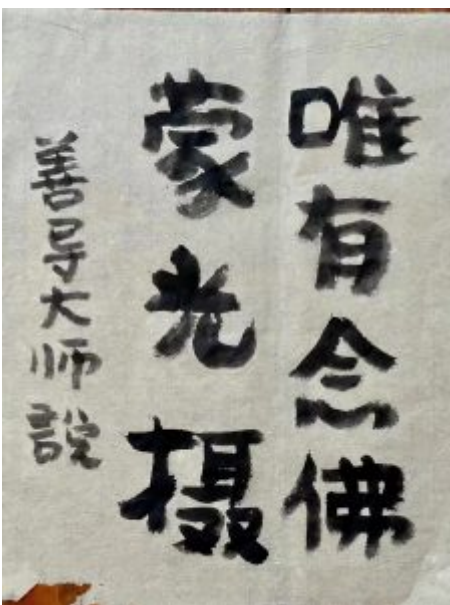 唯有念佛
蒙光摄
善导大师說